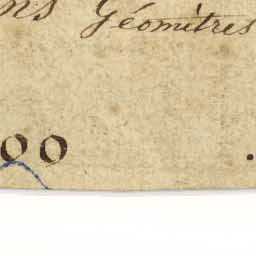 ns Géomètres
00 .